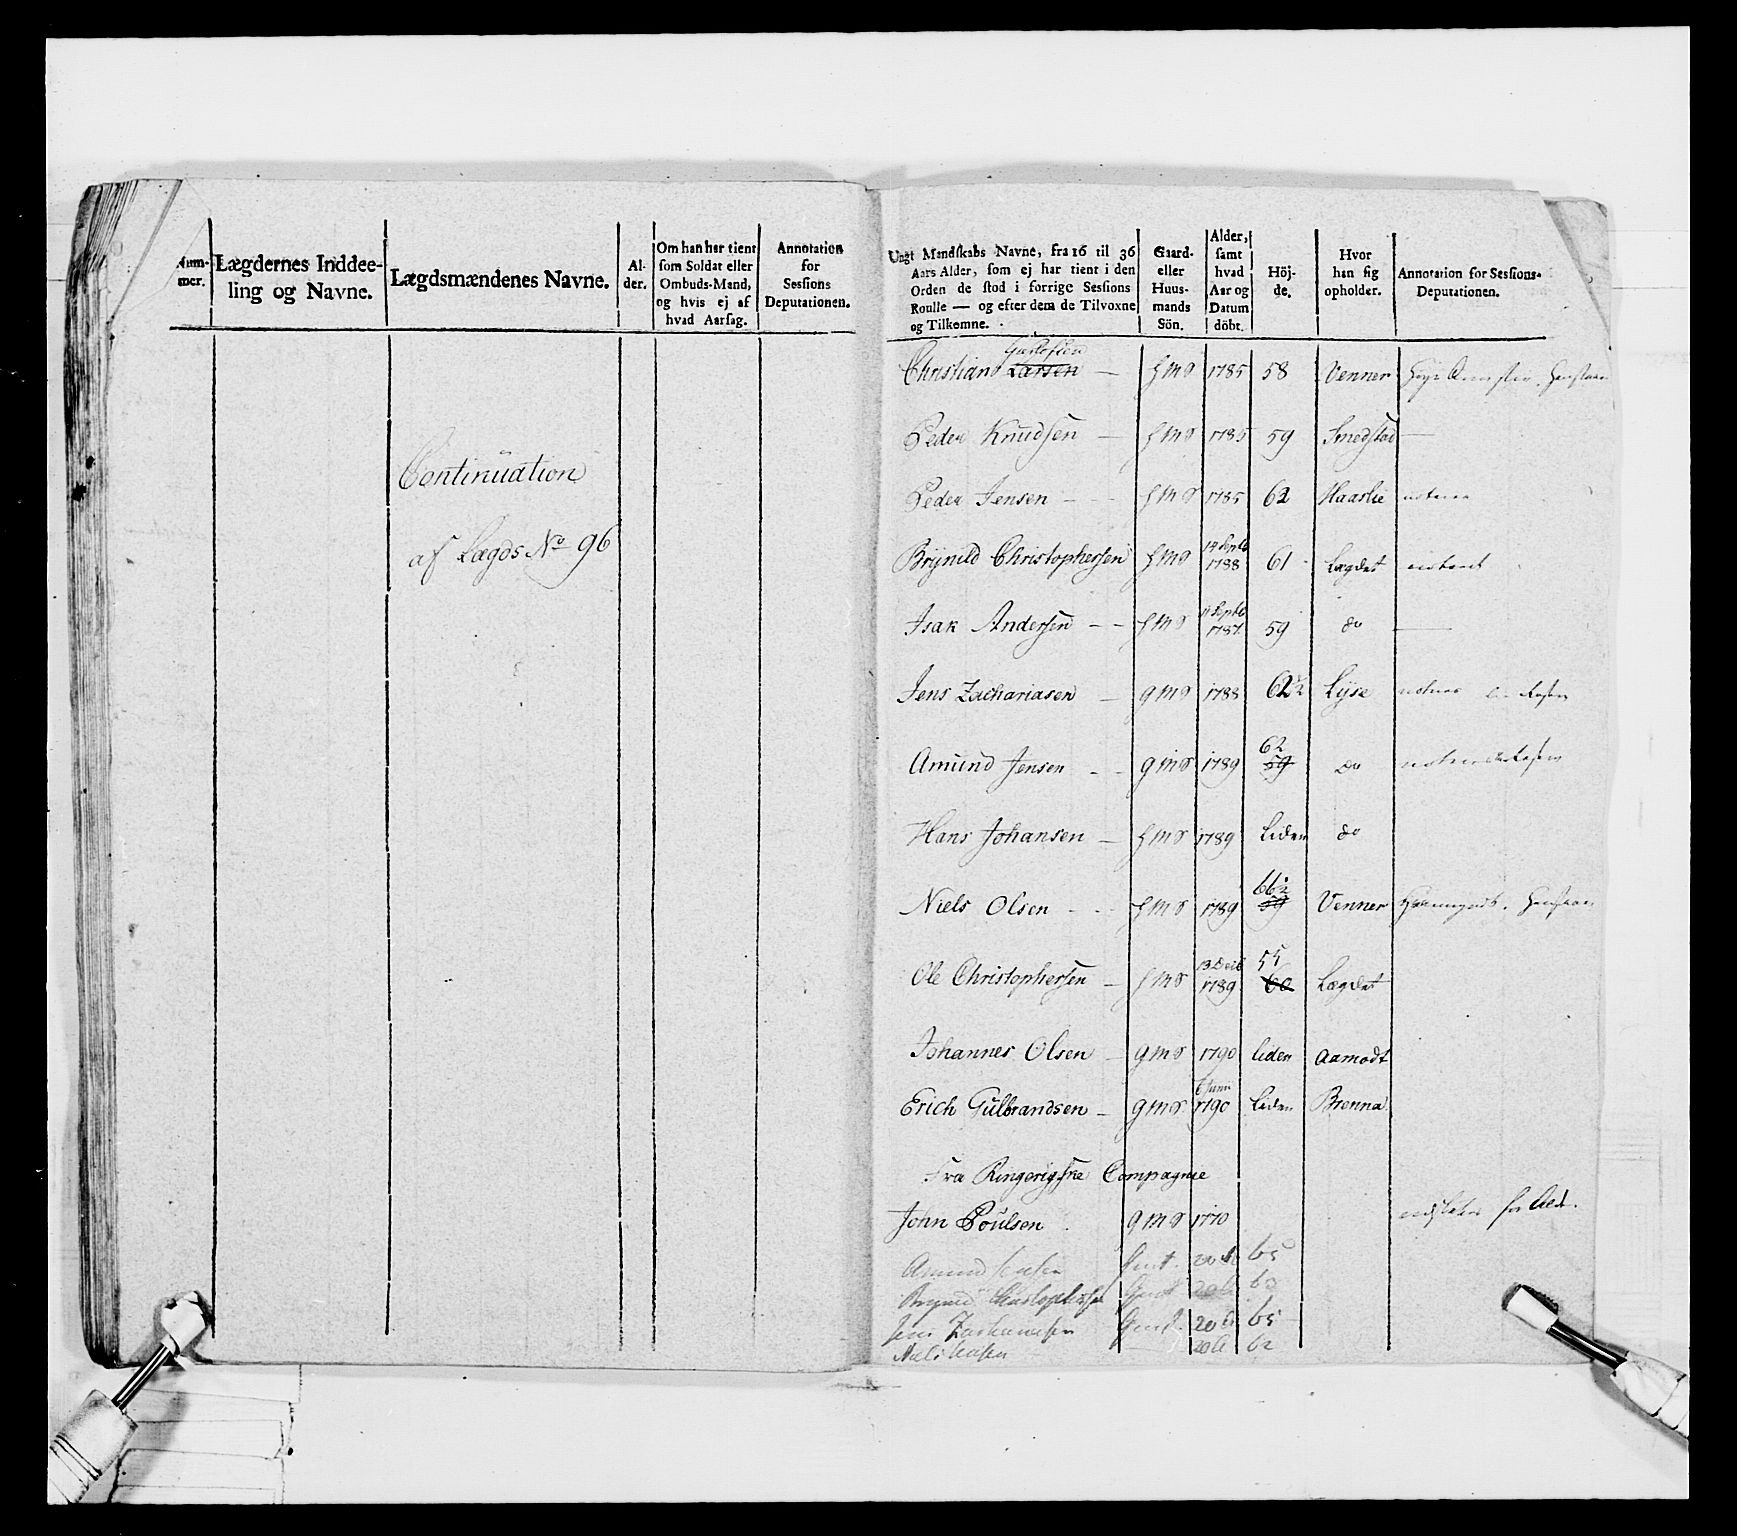 Num-
mer.
Lægdernes Inddee-
ling og Navne.
Lægdsmændenes Navne.
Al-
der.
Om han har tient
som Soldat eller
Ombuds-Mand,
og hvis ej af
hvad Aarsag.
Annotation
for
Sessions
Deputationen.
Continuation
af Lægds No 96
Ungt Mandskabs Navne, fra 16 til 36
Aars Alder, som ej har tient i den
Orden de stod i forrige Sessions
Roulle — og efter dem de Tilvoxne
og Tilkomne.
Gaard-
eller
Huus-
mands
Sön.
Alder,
samt
hvad
Aar og
Datum
döbt.
Höj-
de.
Hvor
han sig
opholder.
Annotation for Sessions-
Deputationen.
Christian Larsen — h m s 1785 58 Venner
Peder Knudsen — h m s 1785 59 Smedstad —
Peder Jensen - - h m s 1785 62 Haaslie
14 Septb
Brynild Christophersen h m s 1788 61 Lægdet noteret
11 Septb
Isak Andersen - - h m s 1787 59 do —
Jens Zachariasen — g m s 1788 62½ Lyse
62
Amund Jensen - - g m s 1789 59 do
Hans Johansen — h m s 1789 Liden do
Niels Olsen - - h m s 1789 59 Venner
13 Decb 55
Ole Christophersen — h m s 1789 60 Lægdet
Johannes Olsen — g m s 1790 liden Aamodt
6 Junii
Erich Gulbrandsen — g m s 1790 Liden Brenna
Fra Ringerigske Compagnie
John Poulsen g m s 1770 for Alder.
Amund Jensen 20 65
Brynild Christophersen 20
Jens Zachariasen 20 65
62